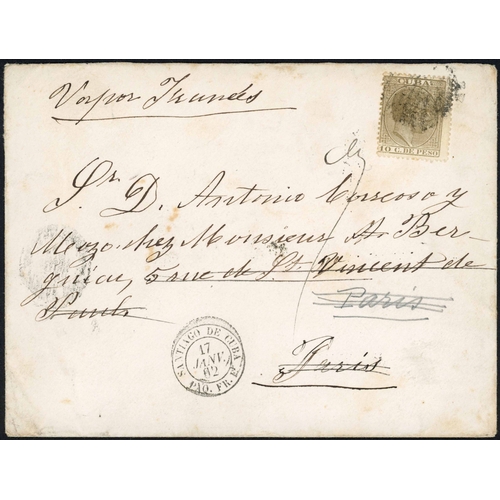 CUBA
10 C. DE PESO
Vapor Francés
Sr. D. Antonio Carrcoso y
Mozo chez Monsieur A. Ber-
gniau, 5 rue de St. Vincent de
Paul.
Paris
Paris
SANTIAGO DE CUBA
17
JANV.
82
PAQ. FR.